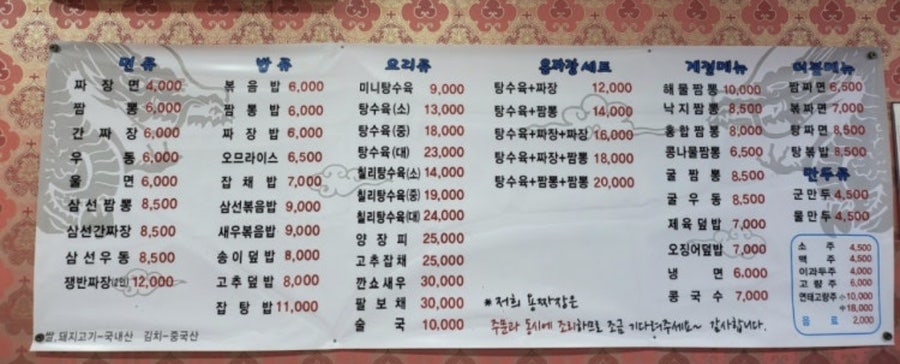 면류
짜장면 4,000
짬뽕 6,000
간짜장 6,000
우동 6,000
울면 6,000
삼선짬뽕 8,500
삼선간짜장 8,500
삼선우동 8,500
쟁반짜장(2인) 12,000
밥류
볶음밥 6,000
짬뽕밥 6,000
짜장밥 6,000
오므라이스 6,500
잡채밥 7,000
삼선볶음밥 9,000
새우볶음밥 9,000
송이덮밥 8,000
고추덮밥 8,000
잡탕밥 11,000
요리류
미니탕수육 9,000
탕수육(소) 13,000
탕수육(중) 18,000
탕수육(대) 23,000
칠리탕수육(소) 14,000
칠리탕수육(중) 19,000
칠리탕수육(대) 24,000
양장피 25,000
고추잡채 25,000
깐쇼새우 30,000
팔보채 30,000
술국 10,000
용짜장세트
탕수육+짜장 12,000
탕수육+짬뽕 14,000
탕수육+짜장+짜장 16,000
탕수육+짜장+짬뽕 18,000
탕수육+짬뽕+짬뽕 20,000
계절메뉴
해물짬뽕 10,000
낙지짬뽕 8,500
홍합짬뽕 8,000
콩나물짬뽕 6,500
굴짬뽕 8,500
굴우동 8,500
제육덮밥 7,000
오징어덮밥 7,000
냉면 6,000
콩국수 7,000
더블메뉴
짬짜면 6,500
볶짜면 7,000
탕짜면 8,500
탕볶밥 8,500
만두류
군만두 4,500
물만두 4,500
소주 4,500
맥주 4,000
이과두주 4,000
고량주 6,000
연태고량주 小 10,000
中 18,000
음료 2,000
*저희 용짜장은
주문과 동시에 조리하므로 조금 기다려주세요~ 감사합니다.
쌀,돼지고기-국내산 김치-중국산